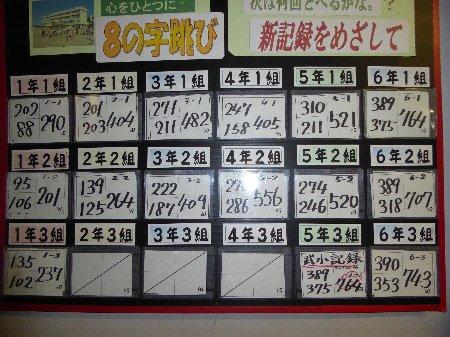 心をひとつに
8の字跳び
次は何回とべるかな。?
新記録をめざして
1年1組 2年1組 3年1組 4年1組 5年1組 6年1組
202 88 290
201 203 404
271 211 482
247 158 405
310 211 521
389 375 764
1年2組 2年2組 3年2組 4年2組 5年2組 6年2組
95 106 201
139 125 264
222 187 409
286 556
274 246 520
389 318 707
1年3組 2年3組 3年3組 4年3組 5年3組 6年3組
135 102 237
武小記録
389 375 764
390 353 743